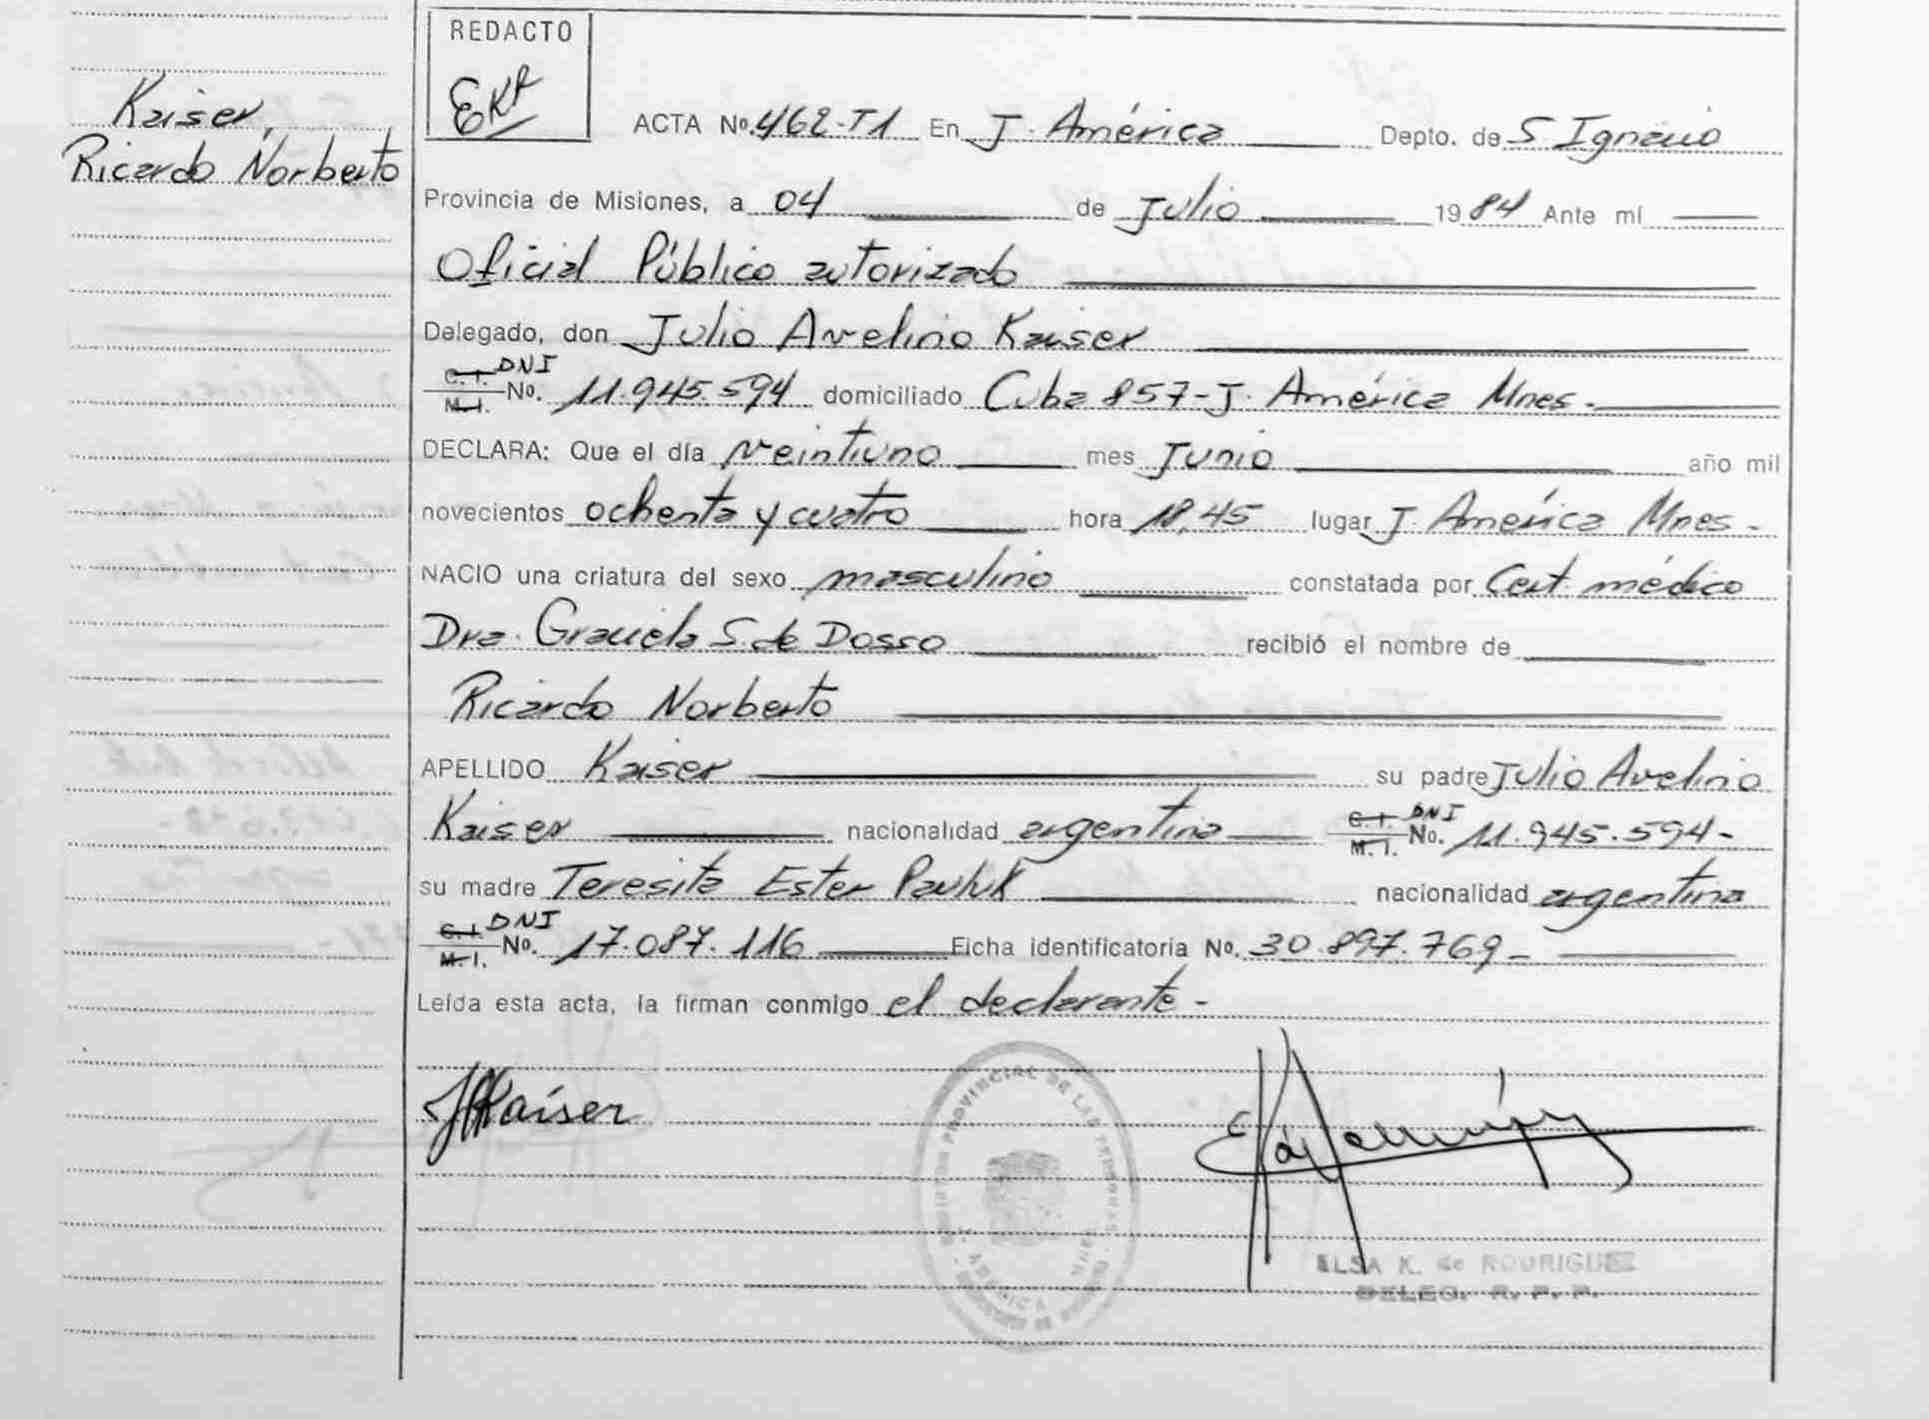 REDACTO
EKR
Kaiser,
Ricardo Norberto
ACTA Nº 462-T1 En J. América Depto. de S Ignacio
Provincia de Misiones, a 04 de Julio 1984 Ante mí
Oficial Público autorizado
Delegado, don Julio Avelino Kaiser
C.I. M.I. DNI No. 11.945.594 domiciliado Cuba 857-J. América Mnes.
DECLARA: Que el día veintiuno mes Junio año mil
novecientos ochenta y cuatro hora 18,45 lugar J. América Mnes.
NACIO una criatura del sexo masculino constatada por Cert. médico
Dra. Graciela S. de Dosso recibió el nombre de
Ricardo Norberto
APELLIDO Kaiser su padre Julio Avelino
Kaiser nacionalidad argentina C.I. M.I. DNI No. 11.945.594-
su madre Teresita Ester Pauluk nacionalidad argentina
C.I. M.I. DNI No. 17.087.116 Ficha identificatoria No. 30.897.769-
Leída esta acta, la firman conmigo el declarante-
JAKaiser
PROVINCIAL DE LAS PERSONAS
AMERICA
ELSA K. de RODRIGUEZ
DELEG. R. P. P.